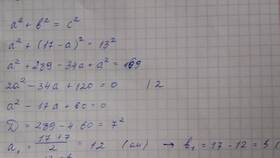 a² + b² = c²
a² + (17 - a)² = 13²
a² + 289 - 34a + a² = 169
2a² - 34a + 120 = 0 | 2
a² - 17a + 60 = 0
D = 289 - 4·60 = 7²
a₁ = (17+7)/2 = 12 (см) → b₁ = 17 - 12 = 5